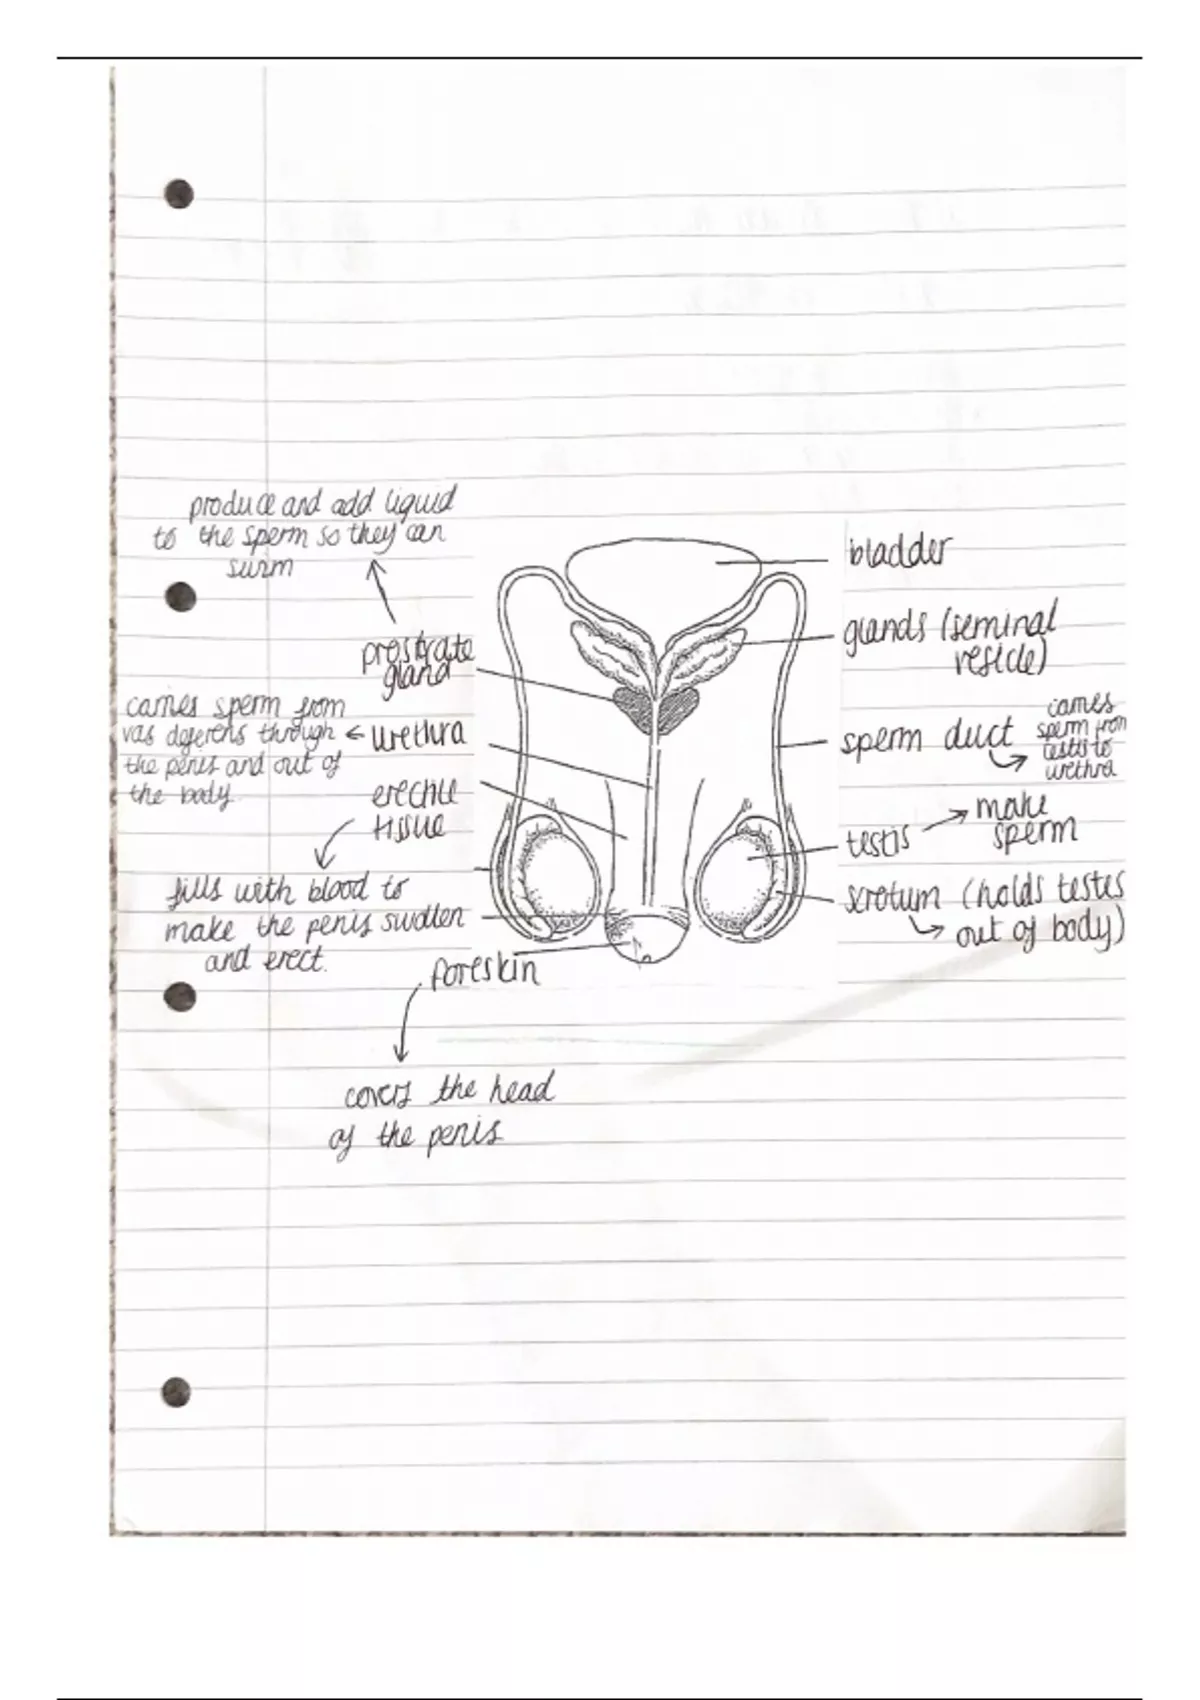 produce and add liquid
to the sperm so they can
swim
prostrate
gland
carries sperm from
vas deferens through
the penis and out of
the body.
urethra
erectile
tissue
fills with blood to
make the penis swollen
and erect.
foreskin
covers the head
of the penis
bladder
glands (seminal
vesicle)
sperm duct
carries
sperm from
testis to
urethra
testis
make
sperm
scrotum (holds testes
out of body)